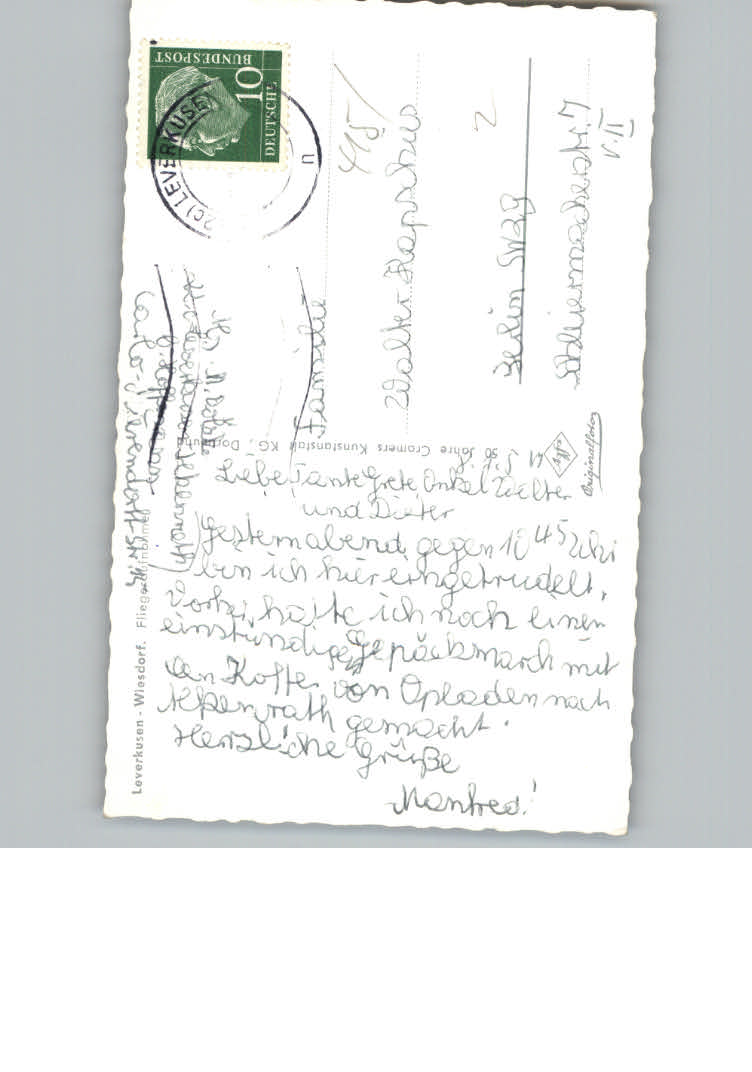 Leverkusen - Wiesdorf. Fliegeraufnahmen
50 Jahre Cramers Kunstanstalt KG., Dortmund
Originalfoto
DEUTSCHE
BUNDESPOST
10
LEVERKUSEN
n
Liebe Tante Grete Onkel Walter
und Dieter
Gestern abend gegen 10 45 Uhr
bin ich hier eingetrudelt.
Vorher hatte ich noch einen
einstündigen Gepäckmarsch mit
den Koffer von Opladen nach
Alkenrath gemacht.
Herzliche Grüße
Manfred!
Familie
Walter
Berlin SW29
Schleiermacherstr. 7
v. II